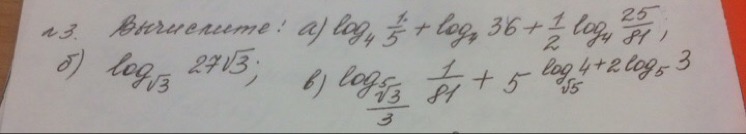 №3. Вычислите: а) log₄ 1/5 + log₄ 36 + 1/2 log₄ 25/81;
б) log_√3 27√3; в) log_(⁵√3/3) 1/81 + 5^(log_√5 4 + 2log₅ 3)